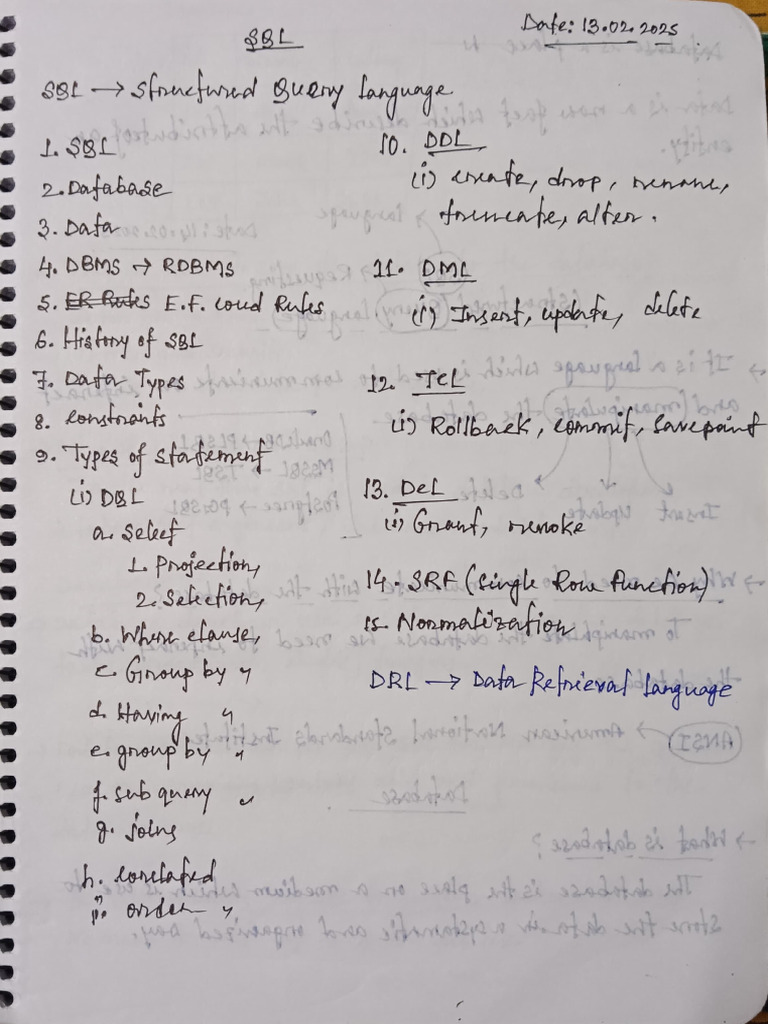 SQL
Date: 13.02.2025
SQL → Structured Query Language
1. SQL
2. Database
3. Data
4. DBMS → RDBMS
5. ER Rules E.F. Codd Rules
6. History of SQL
7. Data Types
8. constraints
9. Types of statement
(i) DQL
a. Select
1. Projection,
2. Selection,
b. Where clause,
c. Group by "
d. Having "
e. group by "
f. sub query "
g. joins
h. corelated
i. order "
10. DDL
(i) create, drop, rename,
truncate, alter.
11. DML
(i) Insert, update, delete
12. TCL
(i) Rollback, commit, savepoint
13. DCL
(i) Grant, revoke
14. SRF (Single Row Function)
15. Normalization
DRL → Data Retrieval Language